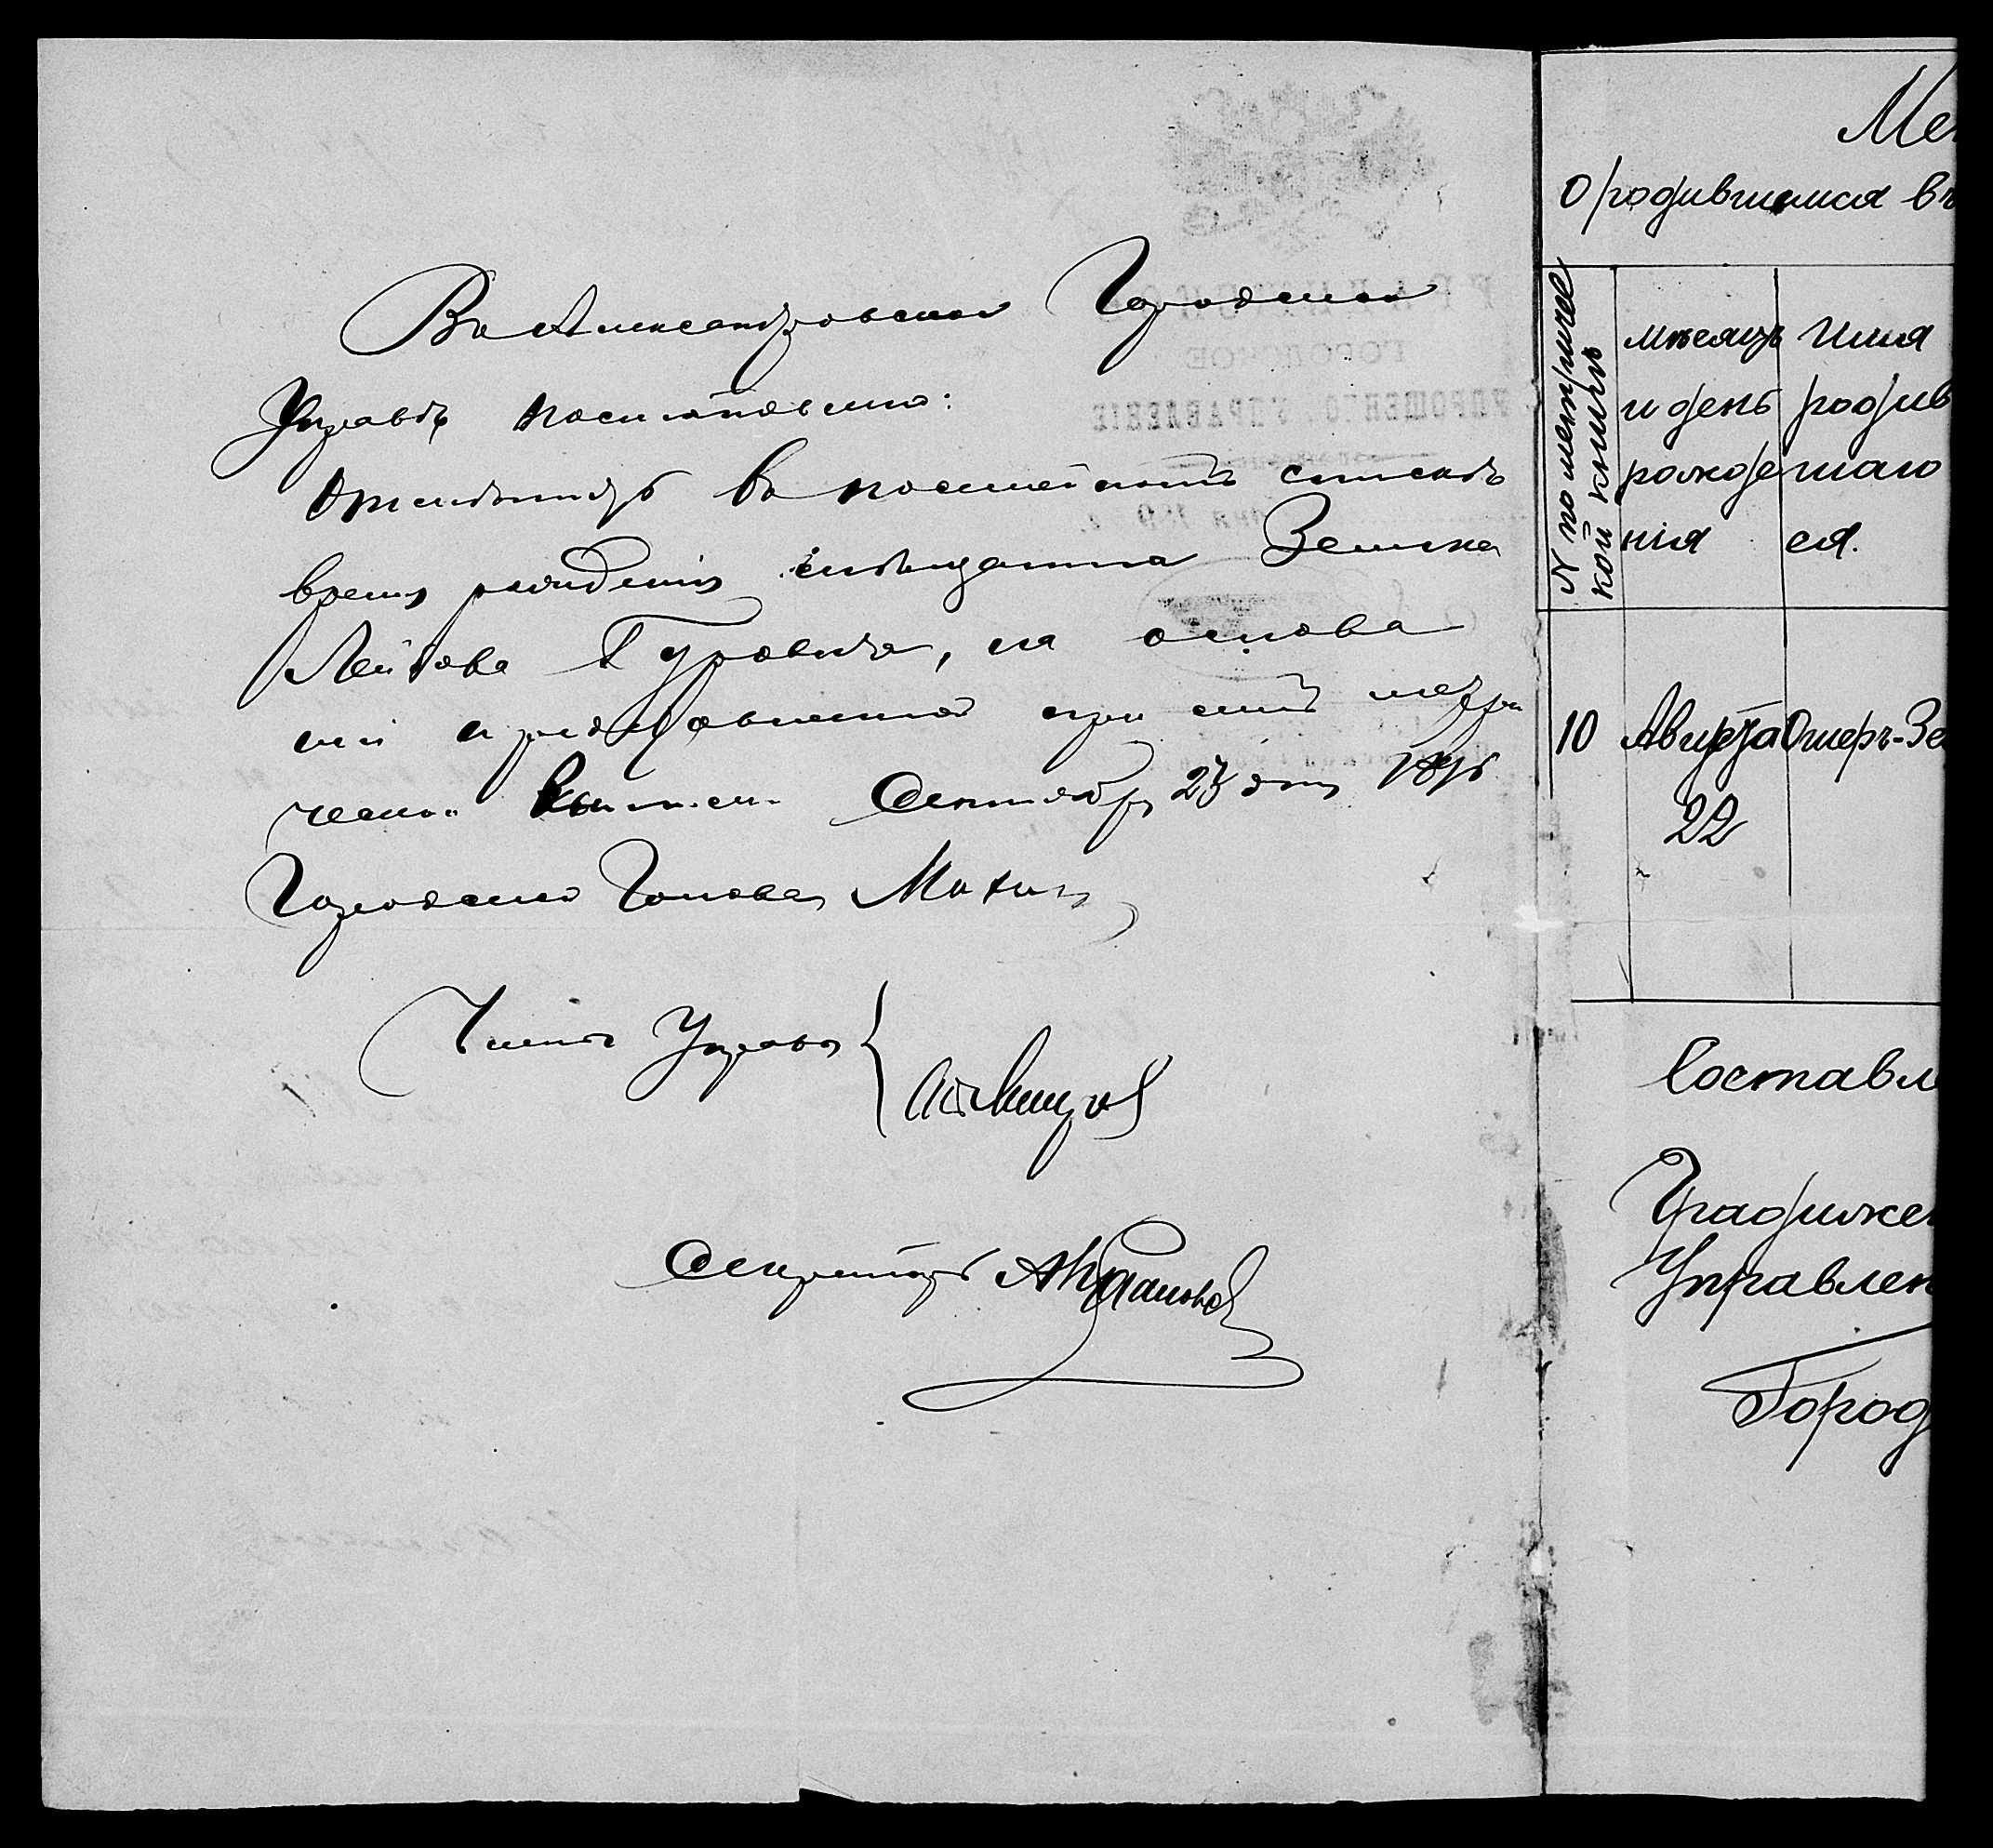 Въ Александровской Городской
Управѣ постановлено:
Отмѣтить въ посемейномъ спискѣ
время рожденія мѣщанина Зелика
Лейбова Гуровича, на основа
ніи представленной при семъ метри
ческой выписи Сентября 23 дня 1896
Городской Голова Махинъ
Члены Управы
Секретарь
Ме
О родившемся въ
№ по метричес
кой книгѣ
мѣсяцъ
и день
рожде
нія
Имя
родив
шаго
ся.
10 Августа Ошеръ-Зе
22
Составл
Градижск
Управлен
Город